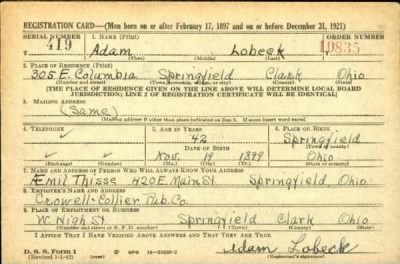 REGISTRATION CARD—(Men born on or after February 17, 1897 and on or before December 31, 1921)
SERIAL NUMBER 1. NAME (Print) ORDER NUMBER
419 Adam Lobeck 10835
(First) (Middle) (Last)
2. PLACE OF RESIDENCE (Print)
305 E. Columbia Springfield Clark Ohio
(Number and street) (Town, township, village, or city) (County) (State)
[THE PLACE OF RESIDENCE GIVEN ON THE LINE ABOVE WILL DETERMINE LOCAL BOARD
JURISDICTION; LINE 2 OF REGISTRATION CERTIFICATE WILL BE IDENTICAL]
3. MAILING ADDRESS
(Same)
[Mailing address if other than place indicated on line 2. If same insert word same]
4. TELEPHONE 5. AGE IN YEARS 6. PLACE OF BIRTH
✓ 42 Springfield
DATE OF BIRTH (Town or county)
✓ ✓ Nov. 19 1899 Ohio
(Exchange) (Number) (Mo.) (Day) (Yr.) (State or country)
7. NAME AND ADDRESS OF PERSON WHO WILL ALWAYS KNOW YOUR ADDRESS
Emil Thisse 420 E. Main St. Springfield, Ohio
8. EMPLOYER'S NAME AND ADDRESS
Crowell-Collier Pub. Co.
9. PLACE OF EMPLOYMENT OR BUSINESS
W. High St. Springfield Clark Ohio
(Number and street or R. F. D. number) (Town) (County) (State)
I AFFIRM THAT I HAVE VERIFIED ABOVE ANSWERS AND THAT THEY ARE TRUE.
D. S. S. Form 1
(Revised 1-1-42) (over) Adam Lobeck
(Registrant's signature)